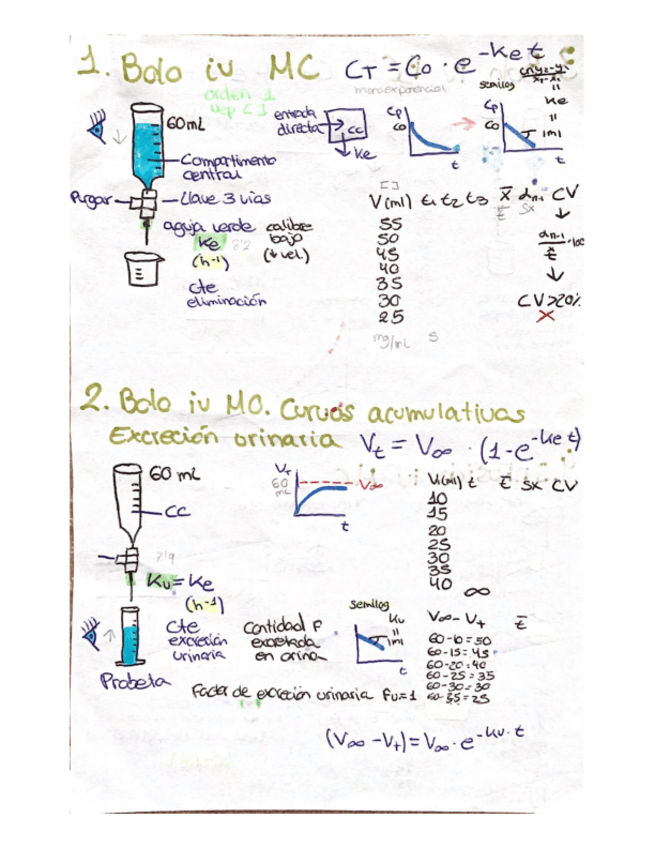 1. Bolo iv MC Ct = Co · e^-Ket
orden 1
Dep [ ]
monoexponencial
semilog
Ke
=
|m|
60 mL
entrada
directa
cc
Ke
Cp
Co
t
Cp
Co
t
Compartimento
central
Purgar
Llave 3 vías
aguja verde
calibre
bajo
(↓ vel.)
Ke
(h⁻¹)
cte
eliminación
[ ]
V(ml) t1 t2 t3 x̄ αn-1 CV
t̄ Sx
55
50
45
40
35
30
25
mg/mL s
αn-1
t̄
·100
CV>20%
X
2. Bolo iv MO. Curvas acumulativas
Excreción orinaria Vt = V∞ · (1-e^-ket)
60 mL
CC
Vt
60
mL
V∞
t
V(ml) t t̄ Sx CV
10
15
20
25
30
35
40
∞
Ku = Ke
(h⁻¹)
Cte
excreción
urinaria
Probeta
Cantidad F
excretada
en orina
semilog
Ku
=
|m|
t
V∞ - Vt t̄
60-10=50
60-15=45
60-20=40
60-25=35
60-30=30
60-35=25
Factor de excreción urinaria Fu=1
(V∞ - Vt) = V∞ · e^-ku·t